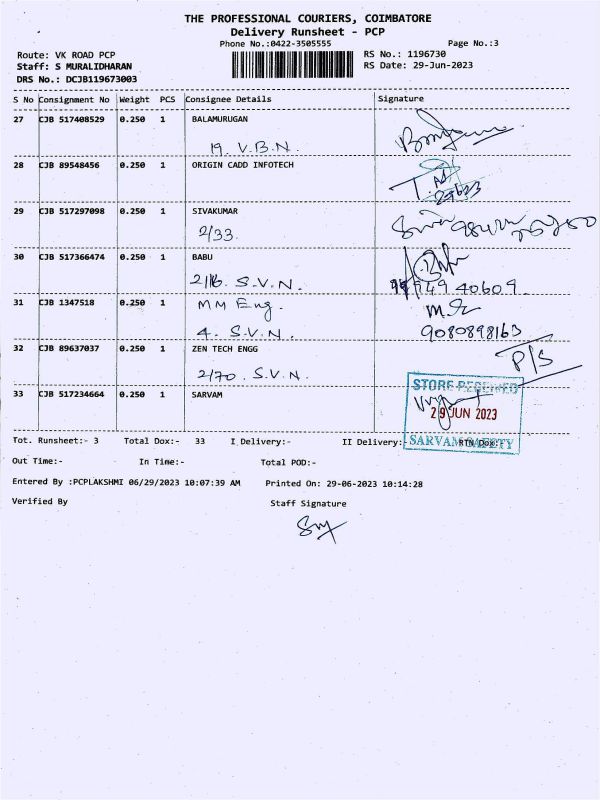 THE PROFESSIONAL COURIERS, COIMBATORE
Delivery Runsheet - PCP
Phone No.:0422-3505555 Page No.:3
Route: VK ROAD PCP RS No.: 1196730
Staff: S MURALIDHARAN RS Date: 29-Jun-2023
DRS No.: DCJB119673003
S No Consignment No Weight PCS Consignee Details Signature
27 CJB 517408529 0.250 1 BALAMURUGAN
19. V.B.N.
28 CJB 89548456 0.250 1 ORIGIN CADD INFOTECH
29 CJB 517297098 0.250 1 SIVAKUMAR
2/33.
30 CJB 517366474 0.250 1 BABU
2/16. S.V.N.
31 CJB 1347518 0.250 1 MM Eng.
4. S.V.N. 9080898163
32 CJB 89637037 0.250 1 ZEN TECH ENGG
2/70. S.V.N. P/S
33 CJB 517234664 0.250 1 SARVAM
STORE RECEIVED
29 JUN 2023
SARVAM SAFETY
Tot. Runsheet:- 3 Total Dox:- 33 I Delivery:- II Delivery:-
Out Time:- In Time:- Total POD:-
Entered By :PCPLAKSHMI 06/29/2023 10:07:39 AM Printed On: 29-06-2023 10:14:28
Verified By Staff Signature